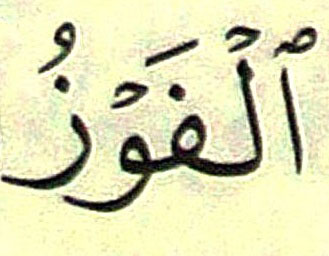 ٱلۡفَوۡزُ